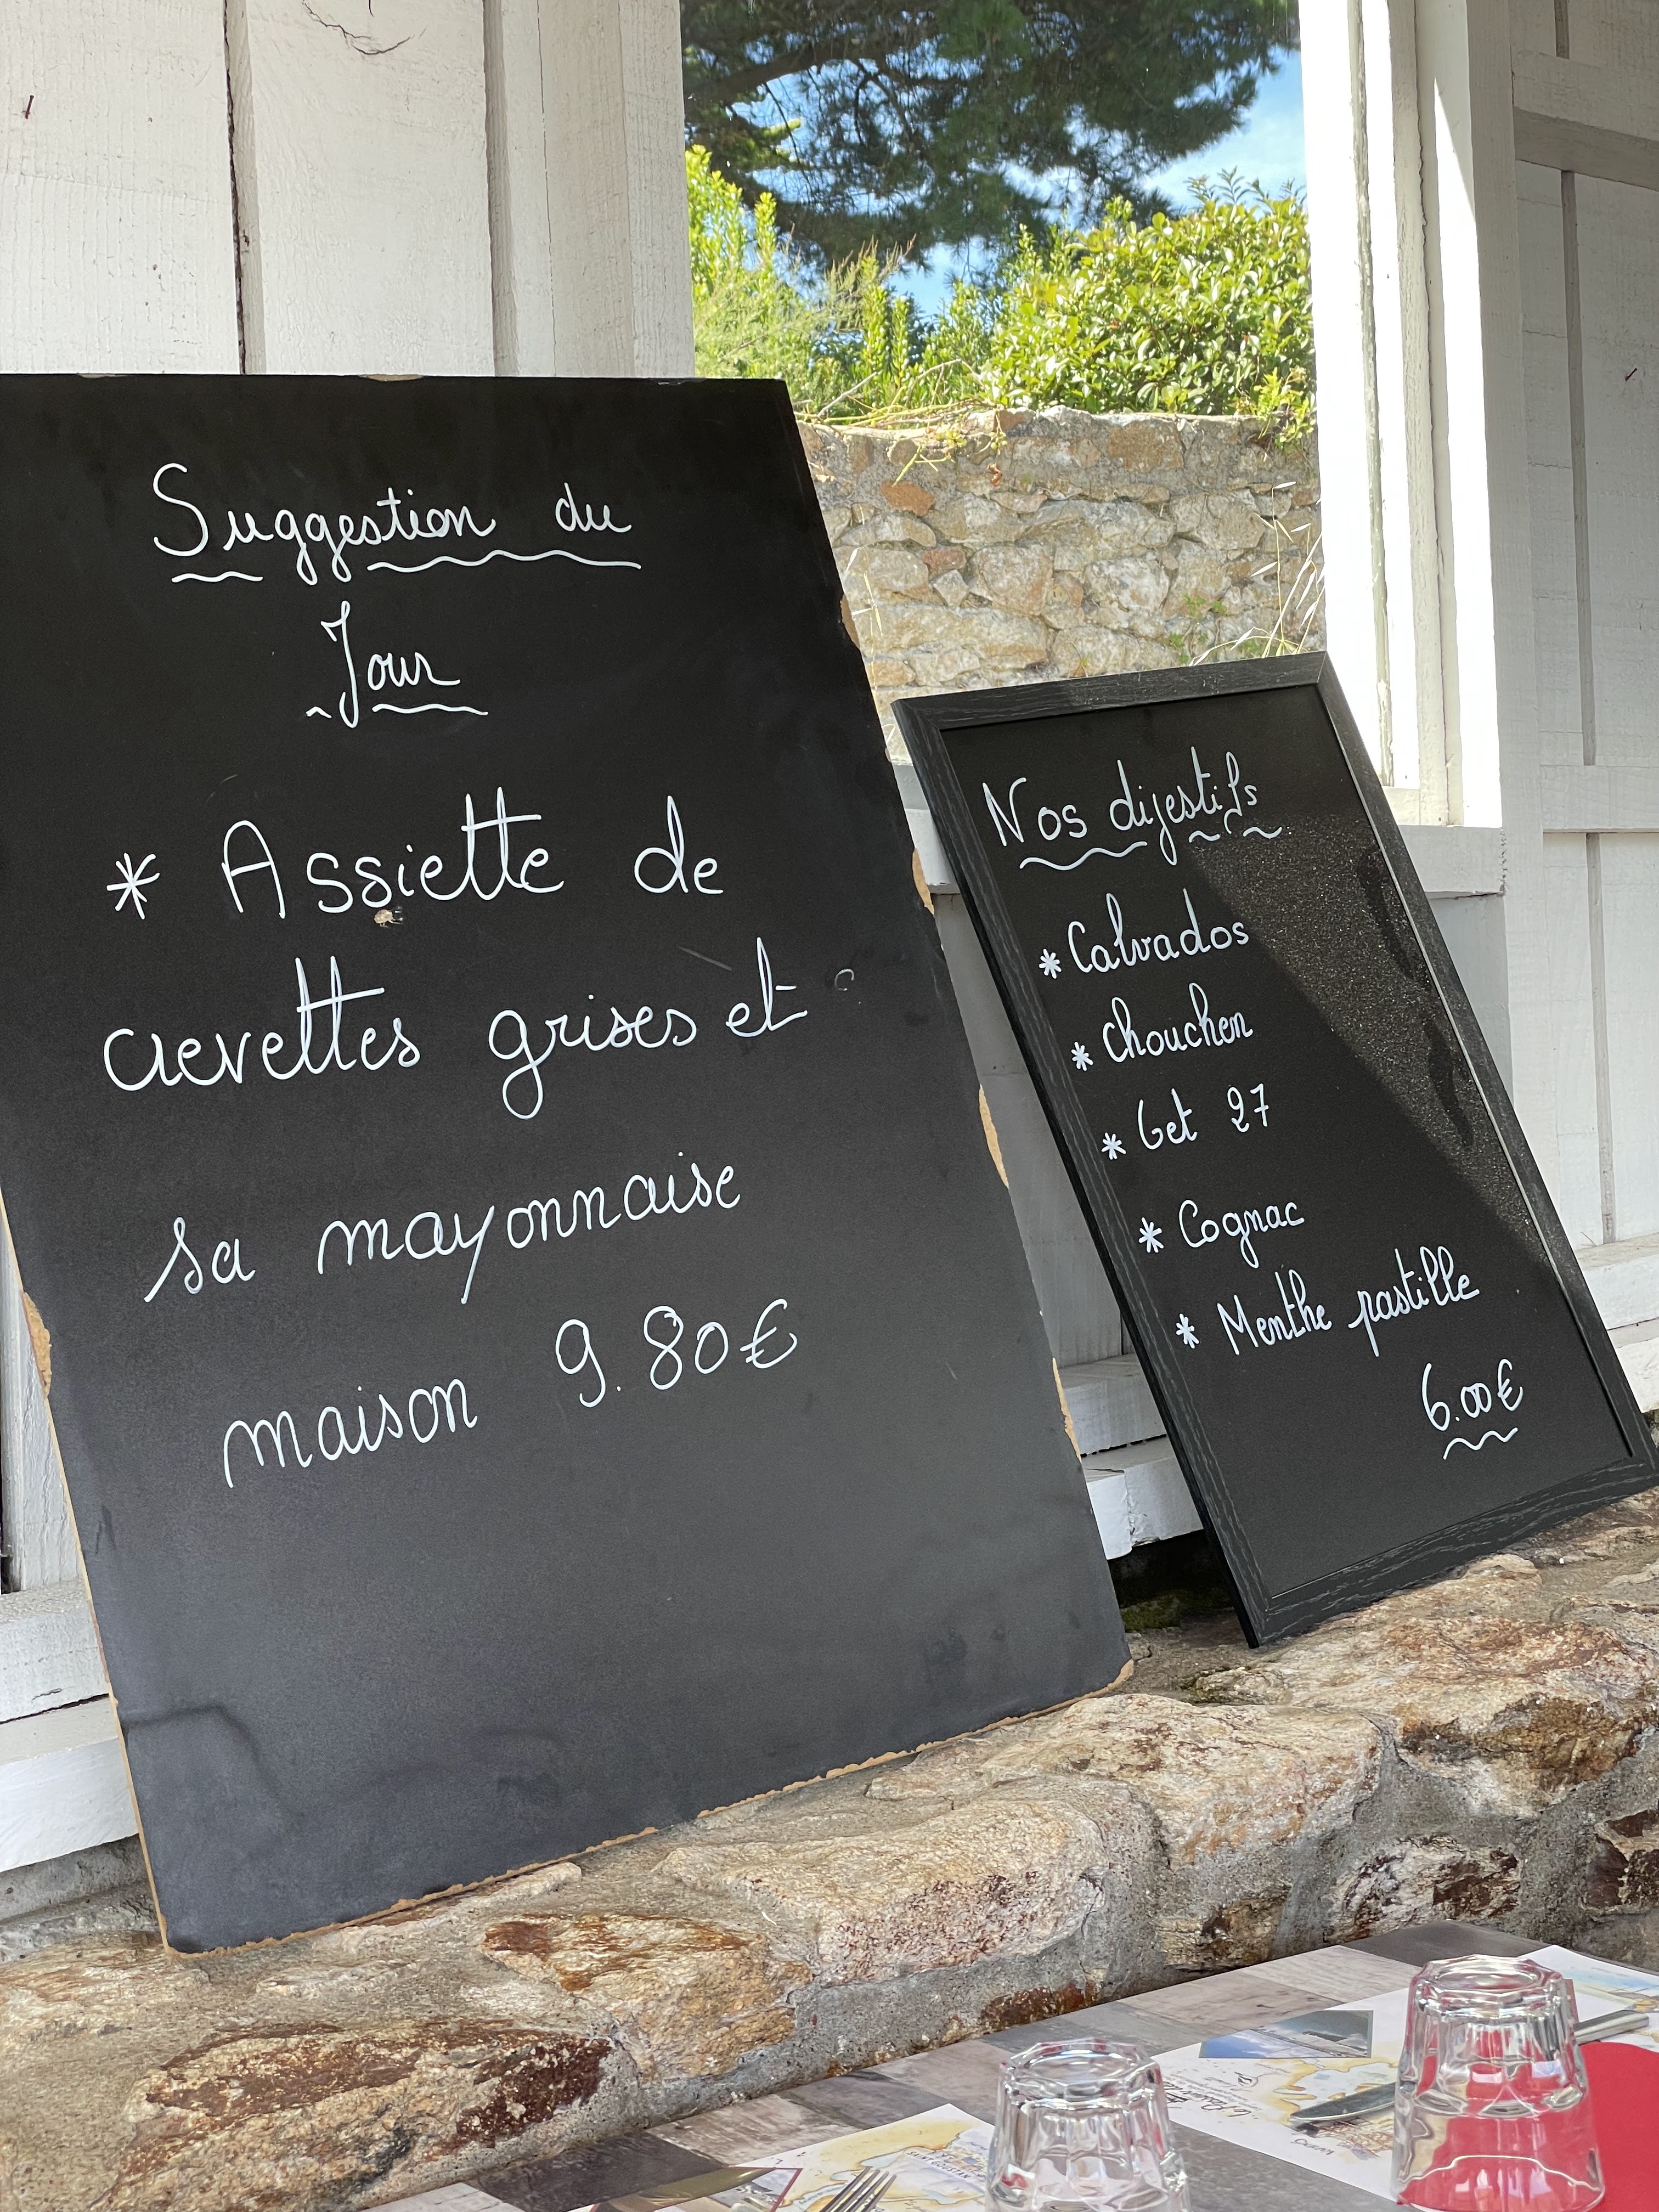 Suggestion du
Jour
* Assiette de
crevettes grises et
sa mayonnaise
maison 9.80€
Nos dijestifs
* Calvados
* chouchen
* Get 27
* Cognac
* Menthe pastille
6.00€